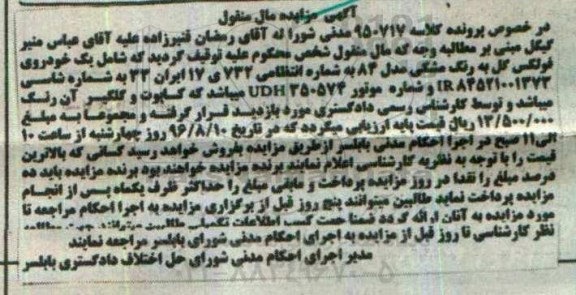 آگهی مزایده مال منقول
در خصوص پرونده کلاسه ۹۵۰۷۱۷ مدنی شورا له آقای رمضان قنبرزاده علیه آقای عباس منیر
گیگل مبنی بر مطالبه وجه که مال منقول شخص محکوم علیه توقیف گردید که شامل یک خودروی
فولکس گل به رنگ مشکی مدل ۸۴ به شماره انتظامی ۷۳۲ ی ۱۷ ایران ۳۳ به شماره شاسی
IR۸۴۵۲۱۰۰۱۳۷۳ و شماره موتور UDH۳۵۰۵۷۴ میباشد که کاپوت و گلگیر آن رنگ
میباشد و توسط کارشناس رسمی دادگستری مورد بازدید قرار گرفته و مجموعا به مبلغ
۱۳/۵۰۰/۰۰۰ ریال قیمت پایه ارزیابی میگردد که در تاریخ ۹۶/۸/۱۰ روز چهارشنبه از ساعت ۱۰
الی۱۱ صبح در اجرا احکام مدنی بابلسر ازطریق مزایده بفروش خواهد رسید کسانی که بالاترین
قیمت را با توجه به نظریه کارشناسی اعلام نمایند برنده مزایده خواهند بود برنده مزایده باید ده
درصد مبلغ را نقدا در روز مزایده پرداخت و مابقی مبلغ را حداکثر ظرف یکماه پس از انجام
مزایده پرداخت نماید طالبین میتوانند پنج روز قبل از برگزاری مزایده به اجرا احکام مراجعه تا
مورد مزایده به آنان ارائه گردد ضمنا جهت کسب اطلاعات تکمیلی طالبین میتوانند جهت مطالعه
نظر کارشناسی تا روز قبل از مزایده به اجرای احکام مدنی شورای بابلسر مراجعه نمایند
مدیر اجرای احکام مدنی شورای حل اختلاف دادگستری بابلسر